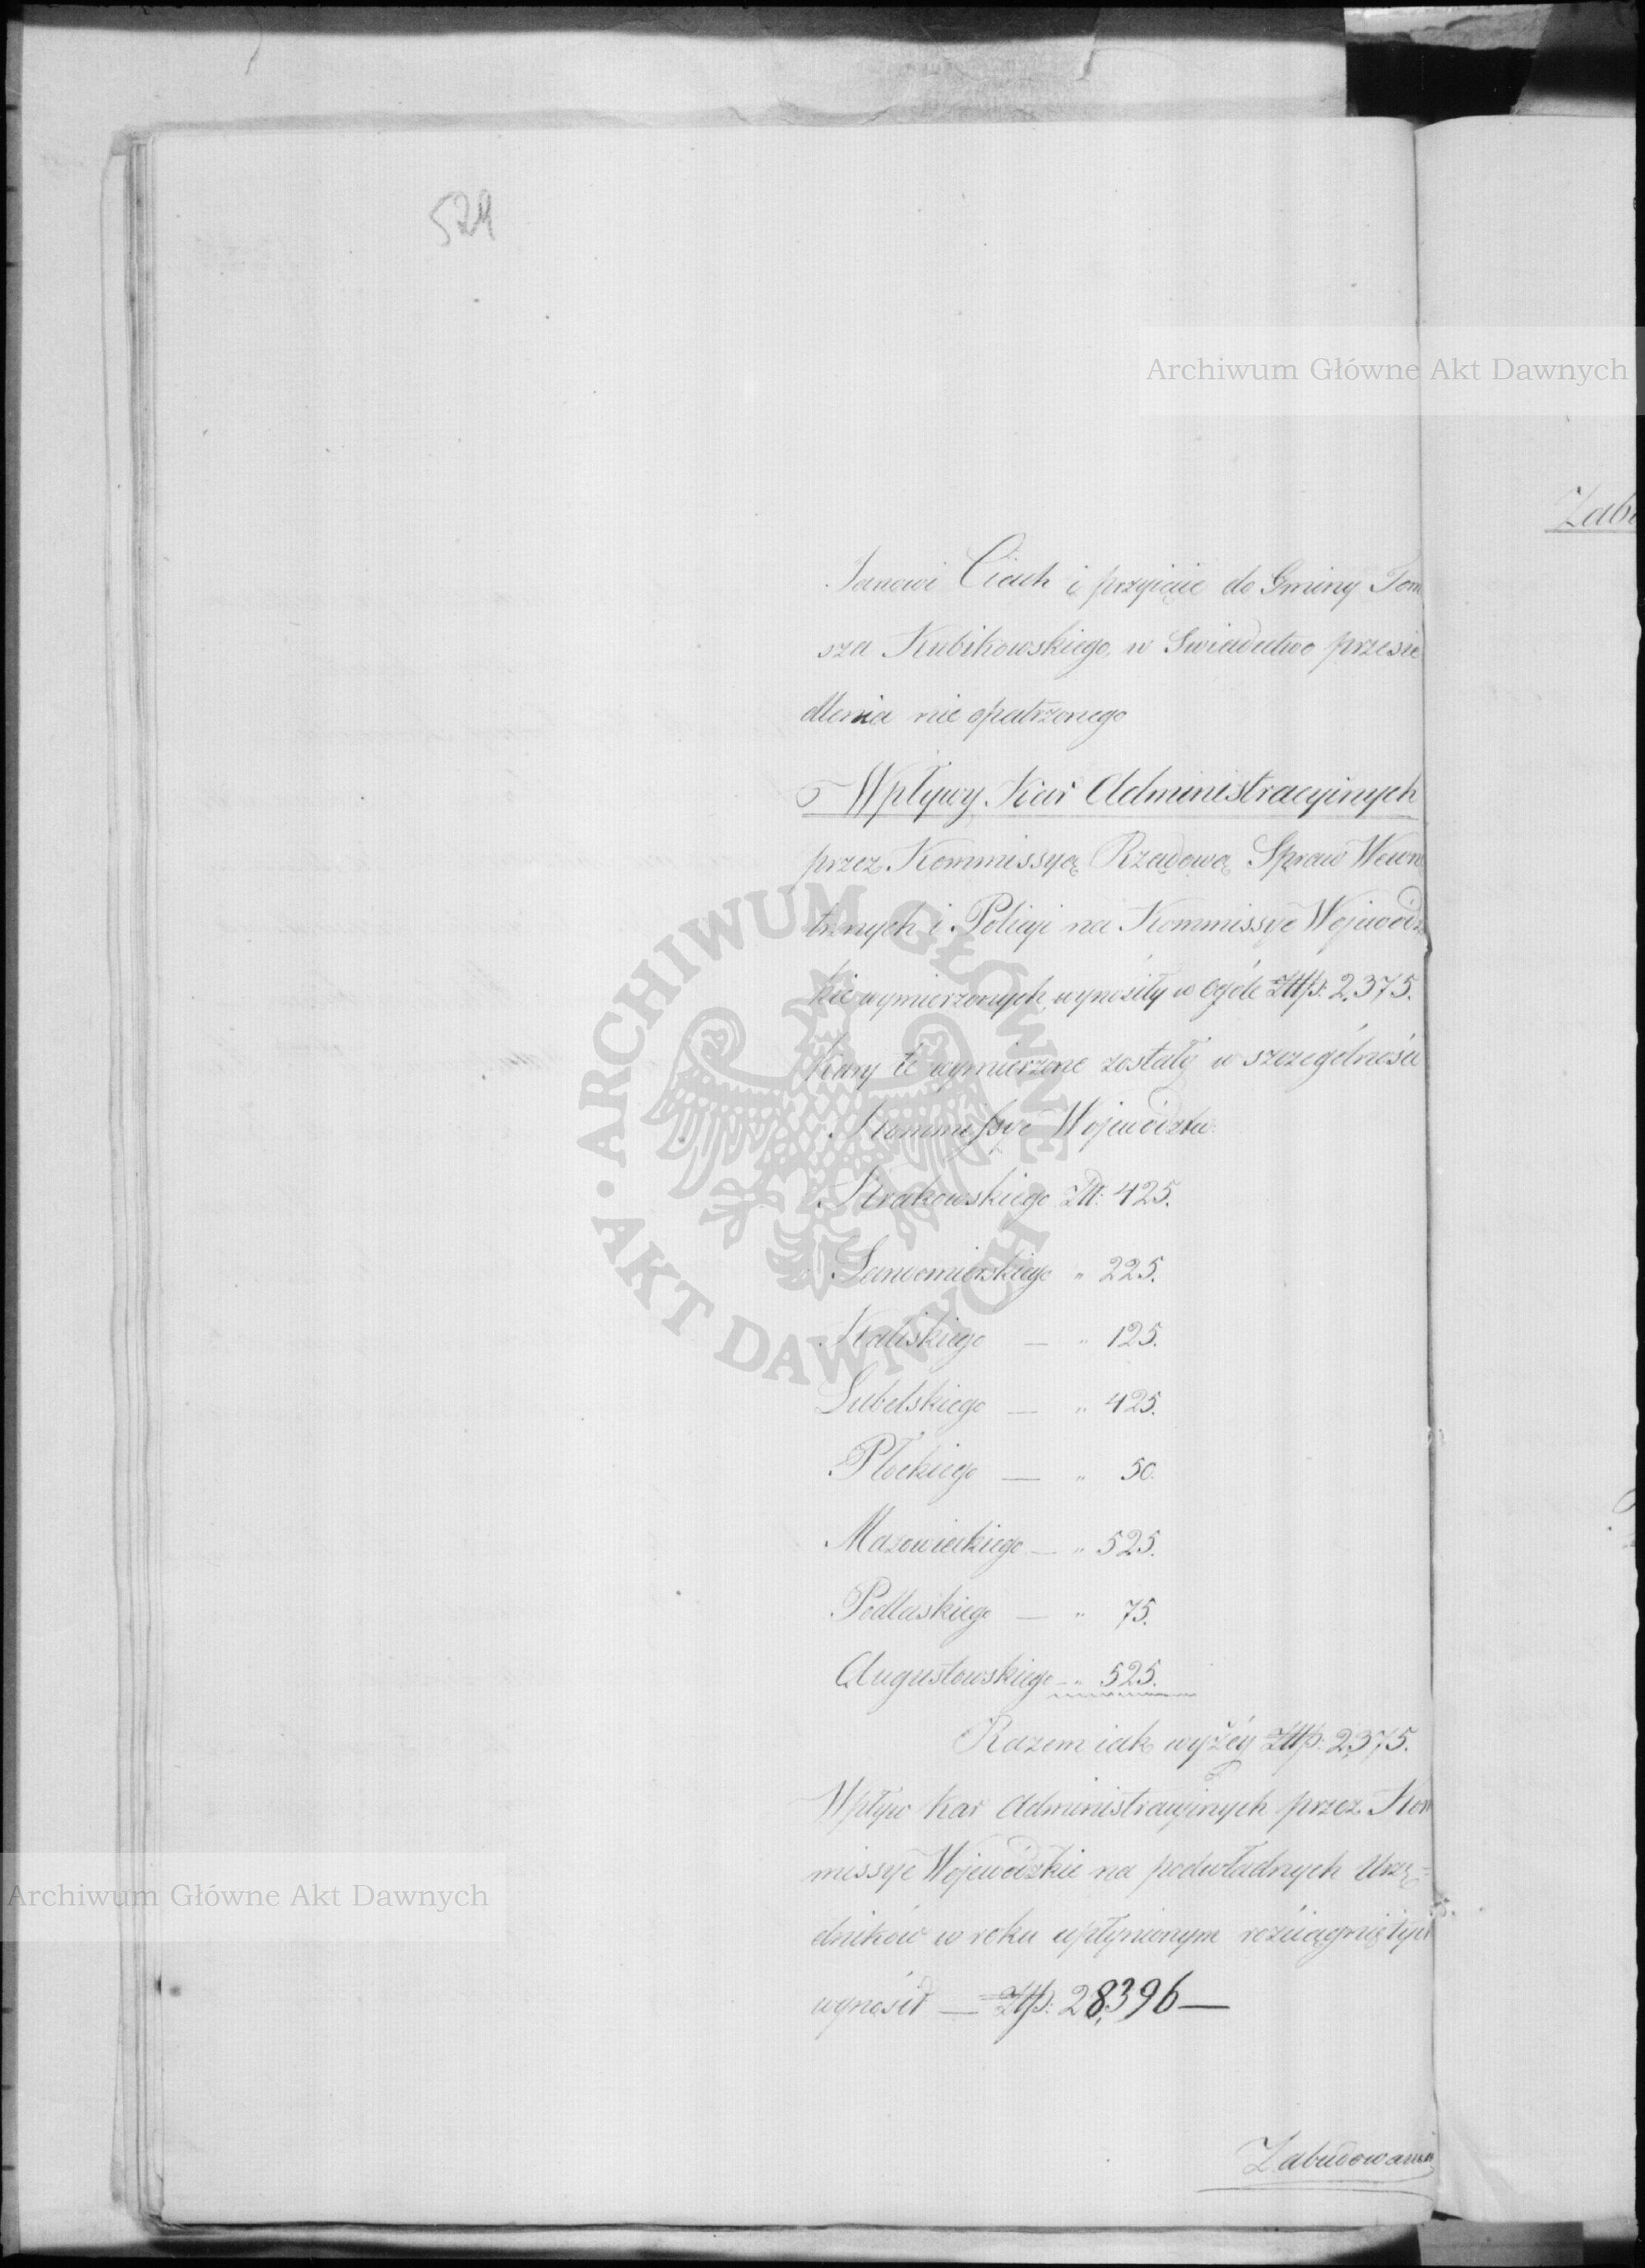 524
Archiwum Główne Akt Dawnych
Zabu
Janowi Ciach i przyięcie do Gminy Tom
sza Kubikowskiego, w Swiadectwo przesie
dlenia nie opatrzonego
Wpływy Kar Administracyinych
przez Kommissyą Rządową Spraw Wewn
trznych i Policyi na Kommissye Wojewódz
kie wymierzonych, wynosiły w ogóle Złłp: 2,375.
Kary te wymierzone zostały w szczególności
Kommissye Wojewódzka:
Krakowskiego Złł: 425.
Sandomierskiego " 225.
Kaliskiego — " 125.
Lubelskiego — " 425.
Płockiego — " 50.
Mazowieckiego — " 525.
Podlaskiego — " 75.
Augustowskiego — " 525.
Razem iak wyżéy Złłp: 2,375.
Wpływ kar Administracyinych przez Kom
missye Wojewódzkie na podwładnych Urzę=
dników w roku upłynionym rozciągniętych
wynosił — Złłp: 28,396 —
Zabudowania
ARCHIWUM GŁÓWNE • AKT DAWNYCH •
Archiwum Główne Akt Dawnych